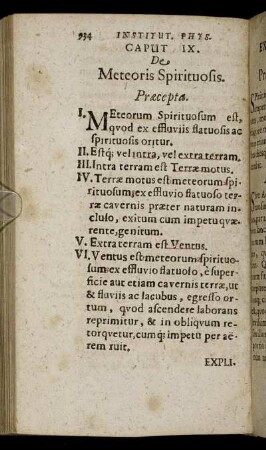 934 INSTITUT. PHYS.
CAPUT IX.
De
Meteoris Spirituosis.
Præcepta.
I. MEteorum Spirituosum est,
qvod ex effluviis flatuosis ac
spirituosis oritur.
II. Estq; vel intra, vel extra terram.
III. Intra terram est Terræ motus.
IV. Terræ motus est meteorum spi-
rituosum, ex effluvio flatuoso ter-
ræ cavernis præter naturam in-
cluso, exitum cum impetu qvæ-
rente, genitum.
V. Extra terram est Ventus.
VI. Ventus est meteorum spirituo-
sum ex effluvio flatuoso, è super-
ficie aut etiam cavernis terræ, ut
& fluviis ac lacubus, egresso or-
tum, qvod ascendere laborans
reprimitur, & in obliqvum re-
torqvetur, cumq; impetu per aë-
rem ruit.
EXPLI-